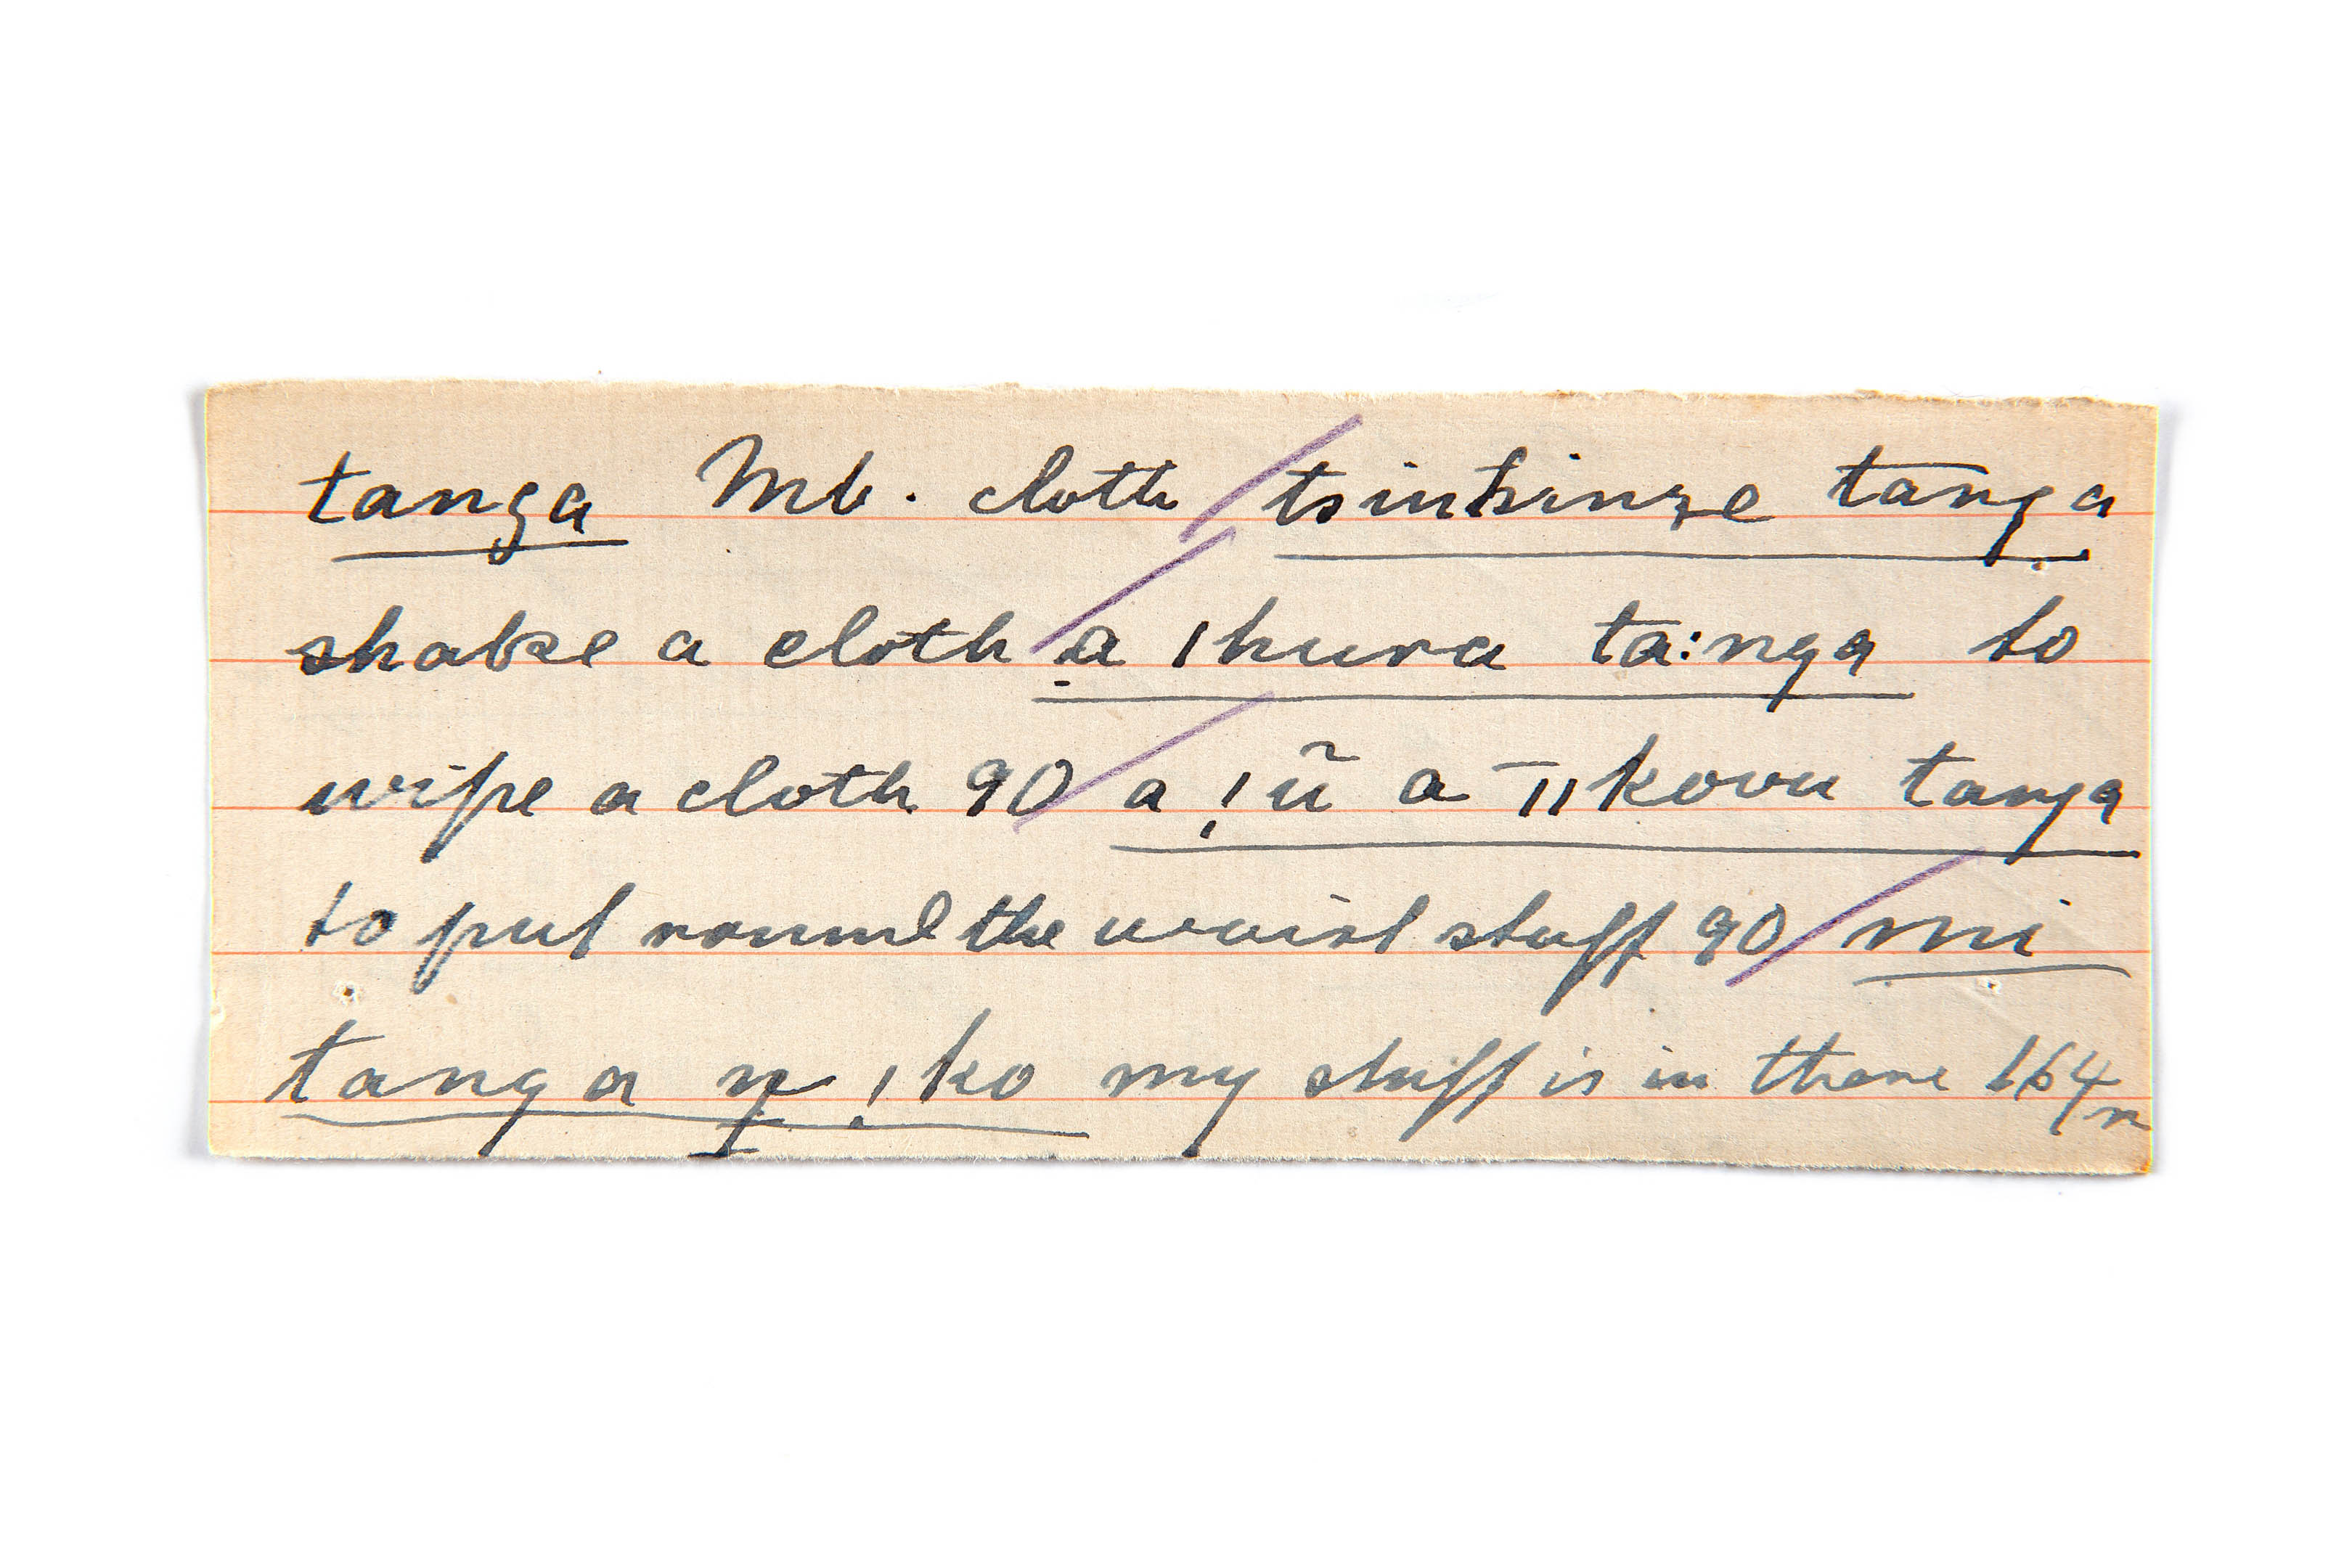 tanga Mb. cloth / tsinkinze tanga
shake a cloth / a̱ ǀhura ta:nga to
wipe a cloth 90 / a ǃũ a ‾ǁkovu tanga
to put round the waist stuff 90 / mi
tanga ṉ ǃko my stuff is in there 164n